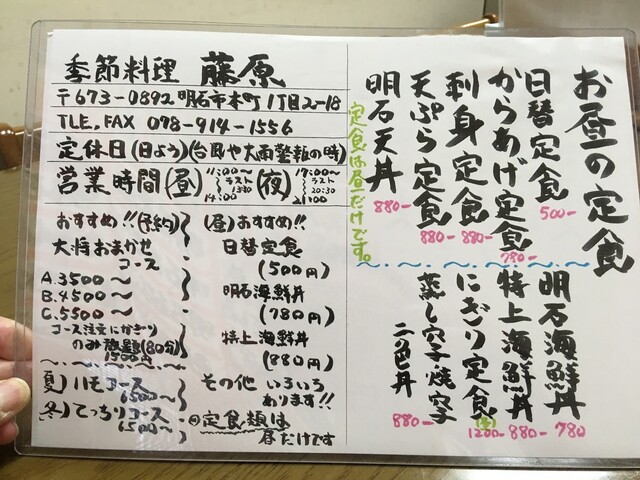 季節料理 藤原
〒673-0892 明石市本町1丁目2-18
TLE,FAX 078-914-1556
定休日(日よう)(台風や大雨警報の時)
営業時間(昼)11:00〜ラスト13:30 14:00(夜)17:00〜ラスト20:30 21:00
おすすめ!!(予約)
大将おまかせ
コース
A.3500〜
B.4500〜
C.5500〜
コース注文にかぎり
のみ放題(80分)
1500円
夏)ハモコース
6500〜
冬)てっちりコース
6500〜
(昼)おすすめ!!
日替定食
(500円)
明石海鮮丼
(780円)
特上海鮮丼
(880円)
その他 いろいろ
あります!!
定食類は
昼だけです
お昼の定食
日替定食 500-
からあげ定食 780-
刺身定食 880-
天ぷら定食 880-
明石天丼 880-
定食は昼だけです。
明石海鮮丼 780
特上海鮮丼 880-
にぎり定食 1200-
蒸し穴子焼穴子
二色丼 880-